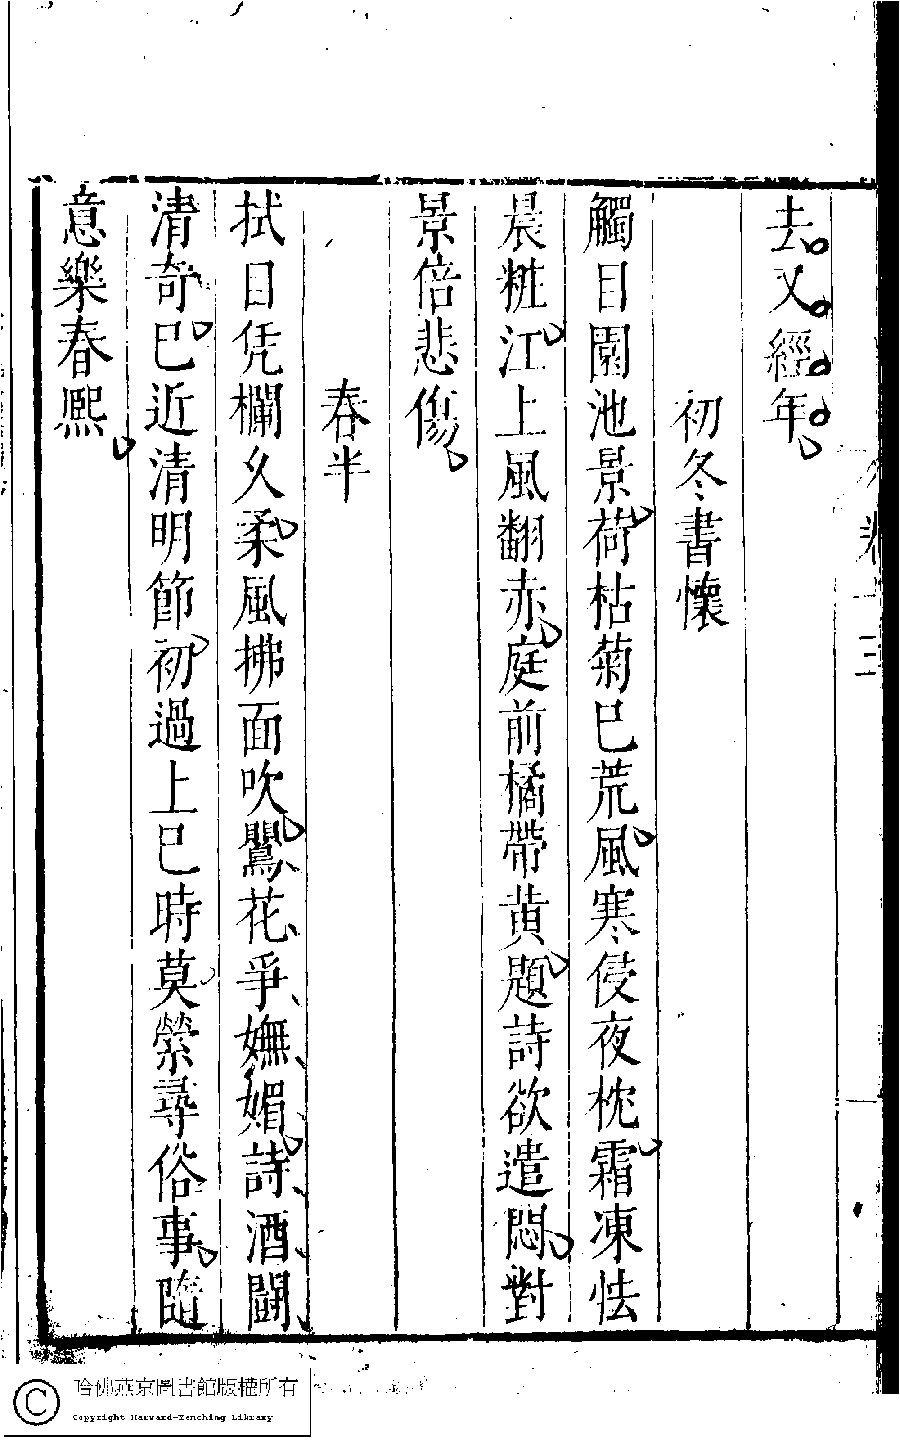 去又經年
初冬書懷
觸目園池景荷枯菊巳荒風寒侵夜枕霜凍怯
晨粧江上風翻赤庭前橘帶黄題詩欲遣悶對
景倍悲傷
春半
拭目凭欄久柔風拂面吹鸎花爭嫵媚詩酒鬪
清奇巳近清明節初過上巳時莫縈尋俗事隨
意樂春熈
哈佛燕京圖書館版權所有
Copyright Harvard-Yenching Library